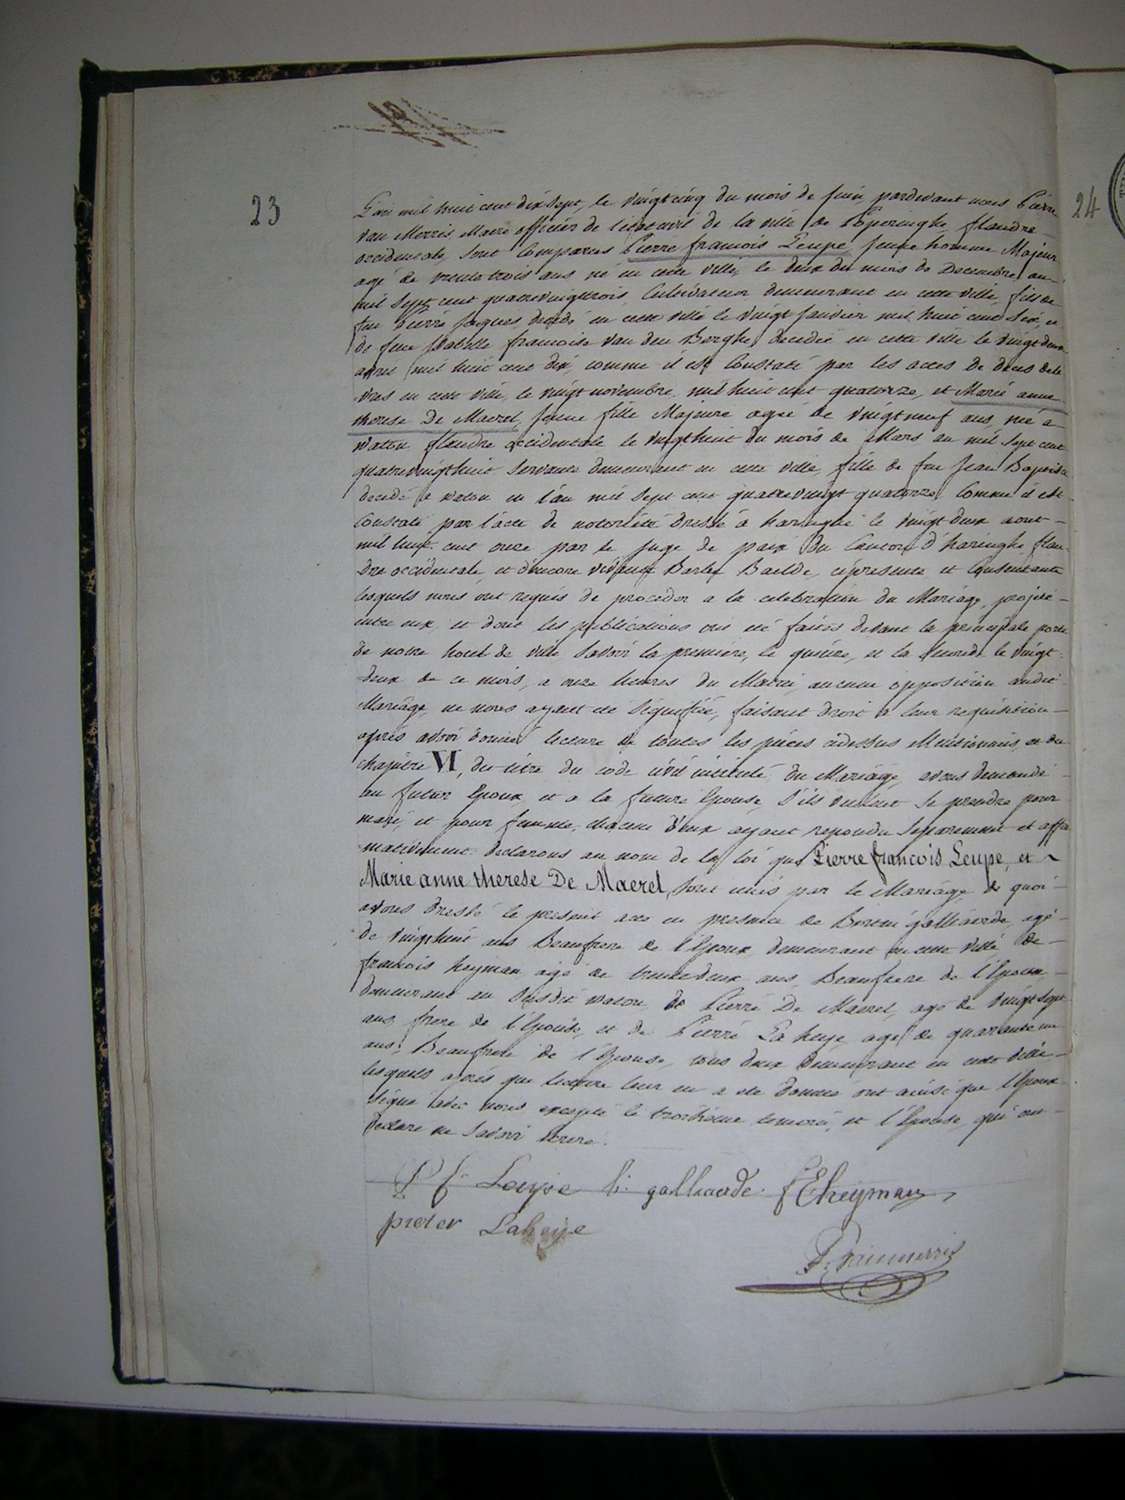 23
24
L'an mil huit cent dix sept, le vingt cinq du mois de juin pardevant nous Pierre
van Merris, Maire officier de l'état civil de la ville de Poperinghe, flandre
occidentale, sont comparus Pierre francois Leupe, jeune homme Majeur
agé de trente trois ans né en cette ville, le deux du mois de Decembre an
mil sept cent quatre vingt trois, Cultivateur demeurant en cette ville, fils de
feu Pierre Jacques decedé en cette ville le vingt Janvier mil huit cent six, et
de feue Isabelle francoise van den Berghe, decedée en cette ville le vingt deux
avril mil huit cent dix, comme il est constaté par les actes de deces deli-
vrés en cette ville, le vingt novembre mil huit cent quatorze, et Marie anne
therese De Maerel, jeune fille Majeure agée de vingt neuf ans, née a
watou flandre occidentale le vingt huit du mois de Mars an mil sept cent
quatre vingt huit servante demeurant en cette ville, fille de feu Jean Baptiste
decedé a watou en l'an mil sept cent quatre vingt quatorze, Comme il est
constaté par l'acte de notoriété dressé à haringhe le vingt deux aout
mil huit cent onze par le juge de paix du Canton d'haringhe flan-
dre occidentale, et d'encore vivante Barbe Baelde, ci presente et consentante
lesquels nous ont requis de proceder a la celebration du Mariage, projeté
entre eux, et dont les publications ont été faites devant la principale porte
de notre hotel de ville savoir la premiere, le quinze, et la seconde le vingt
deux de ce mois, a onze heures du Matin, aucune opposition audit
Mariage, ne nous ayant été signifiée, faisant droit a leur requisition
après avoir donné lecture de toutes les pièces cidessus Mentionnés, et du
chapitre VI, du titre du code civil intitulé du Mariage, avons demandé
au futur Epoux, et a la future Epouse, s'ils veulent se prendre pour
mari, et pour femme, chacun d'eux ayant repondu separement et affir
mativement declarons au nom de la loi que Pierre francois Leupe, et
Marie anne therese De Maerel, sont unis par le Mariage, de quoi
avons dressé le present acte en presence de galliaerde, agé
de vingt huit ans Beaufrere de l'Epoux, demeurant en cette ville de
francois heyman, agé de trente deux ans, Beaufrere de l'Epoux
demeurant au susdit watou de Pierre De Maerel, agé de vingt sept
ans frere de l'Epouse, et de Pierre Laheye, agé de quarante un
ans, Beaufrere de l'Epouse, tous deux demeurant en cette ville
lesquels après que lecture leur en a eté donnée ont ainsi que l'Epoux
signé avec nous excepté le troisième temoin, et l'Epouse, qui ont
declaré ne savoir ecrire.
P f Leupe b galliaerde f E heyman
pieter Laheye
P. vanmerris